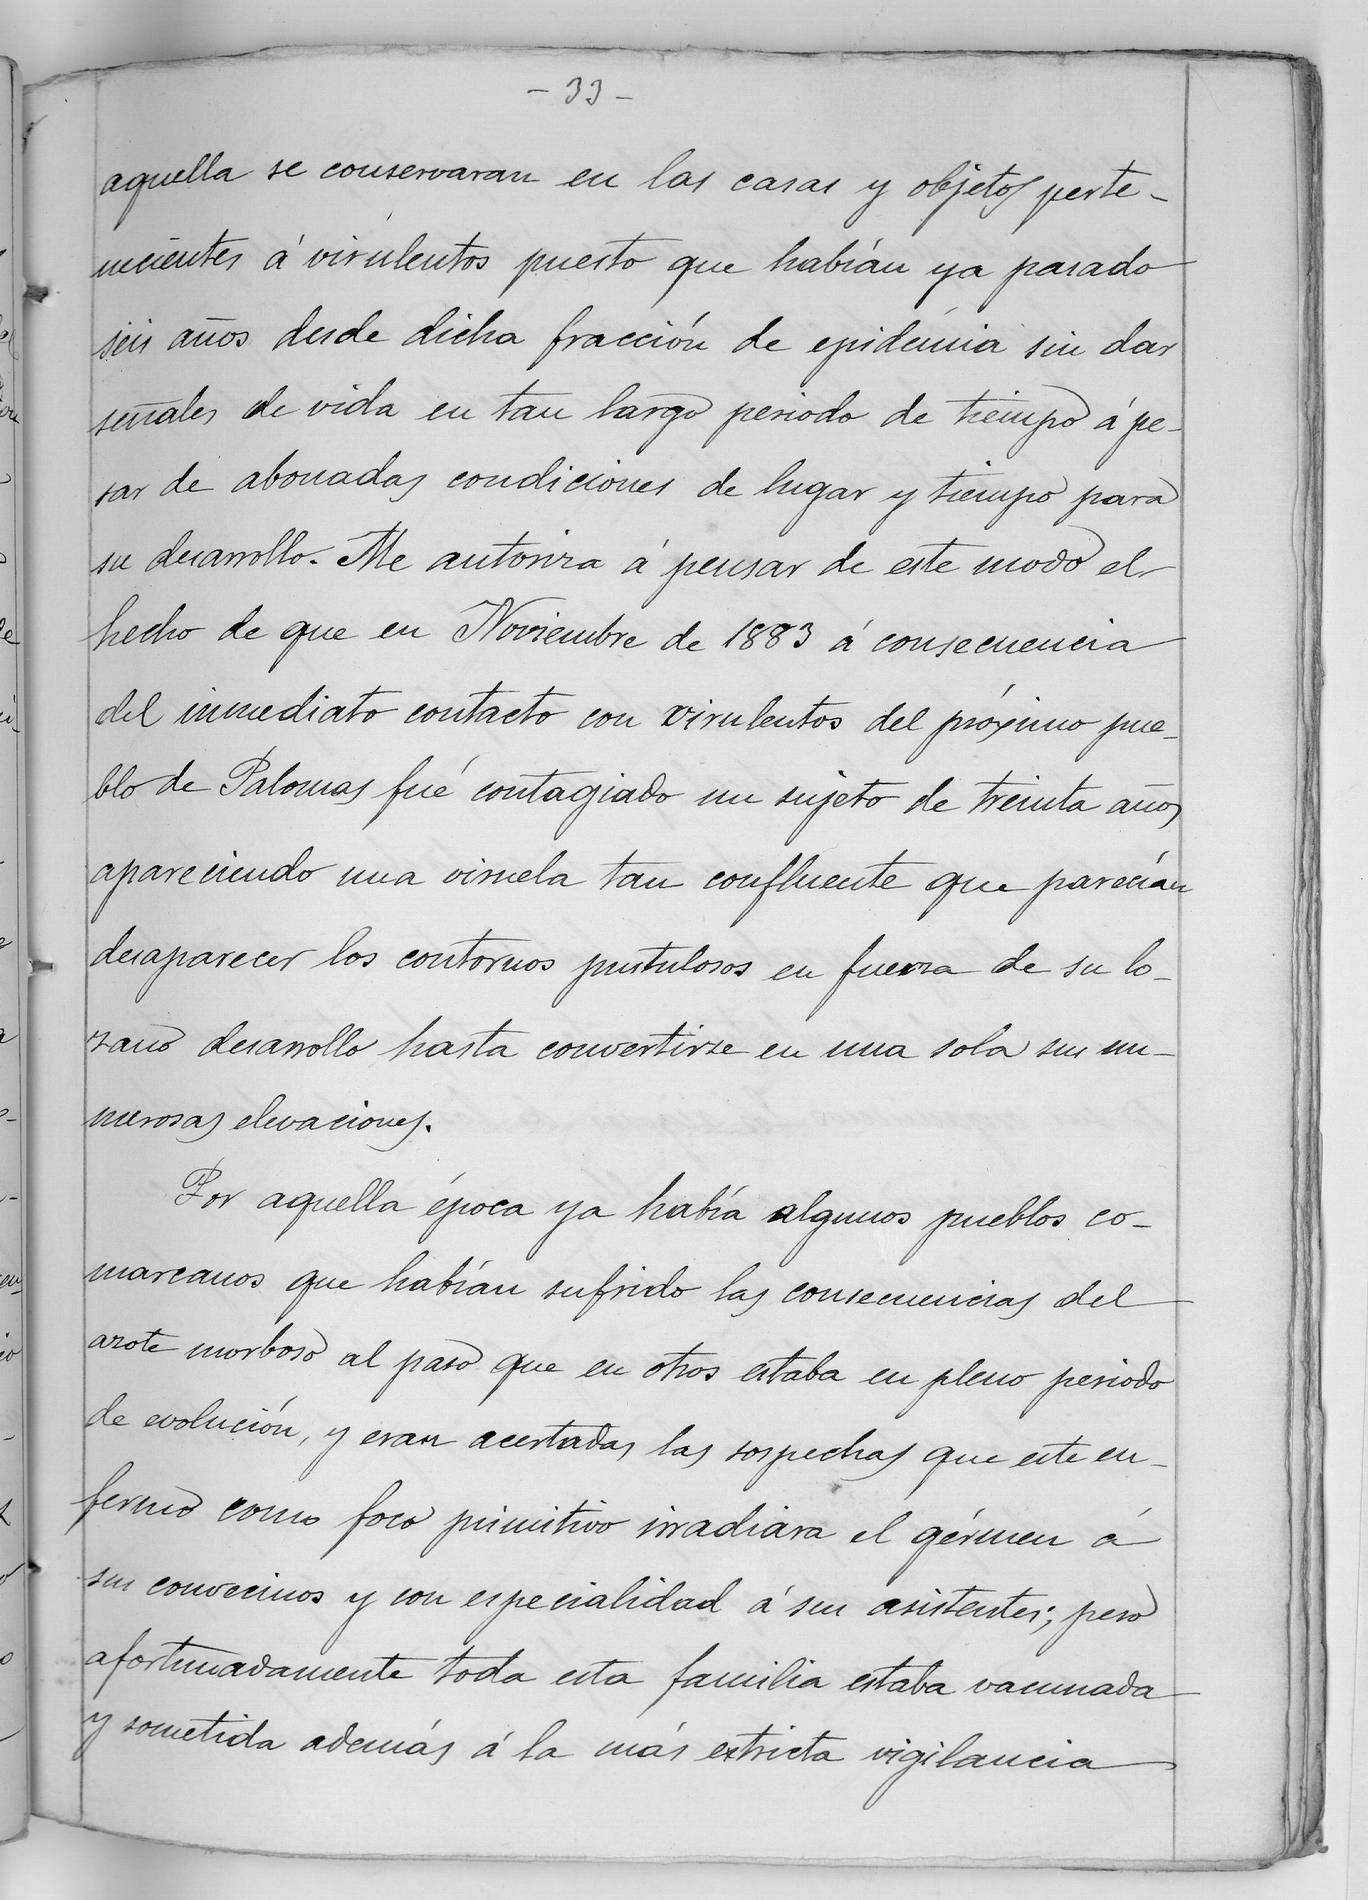 - 33 -
aquella se conservaran en las casas y objetos perte-
necientes á virulentos puesto que habían ya pasado
seis años desde dicha fracción de epidémia sin dar
señales de vida en tan largo periodo de tiempo á pe-
sar de abonadas condiciones de lugar y tiempo para
su desarrollo. Me autoriza á pensar de este modo el
hecho de que en Noviembre de 1883 á consecuencia
del inmediato contacto con virulentos del próximo pue-
blo de Palomas fué contagiado un sujeto de treinta años
apareciendo una viruela tan confluente que parecían
desaparecer los contornos pustulosos en fuerza de su lo-
zano desarrollo hasta convertirse en una sola sus nu-
merosas elevaciones.
Por aquella época ya había algunos pueblos co-
marcanos que habían sufrido las consecuencias del
azote morboso al paso que en otros estaba en pleno periodo
de evolución, y eran acertadas las sospechas que este en-
fermo como foco primitivo irradiara el gérmen á
sus convecinos y con especialidad á sus asistentes; pero
afortunadamente toda esta familia estaba vacunada
y sometida además á la más extricta vigilancia